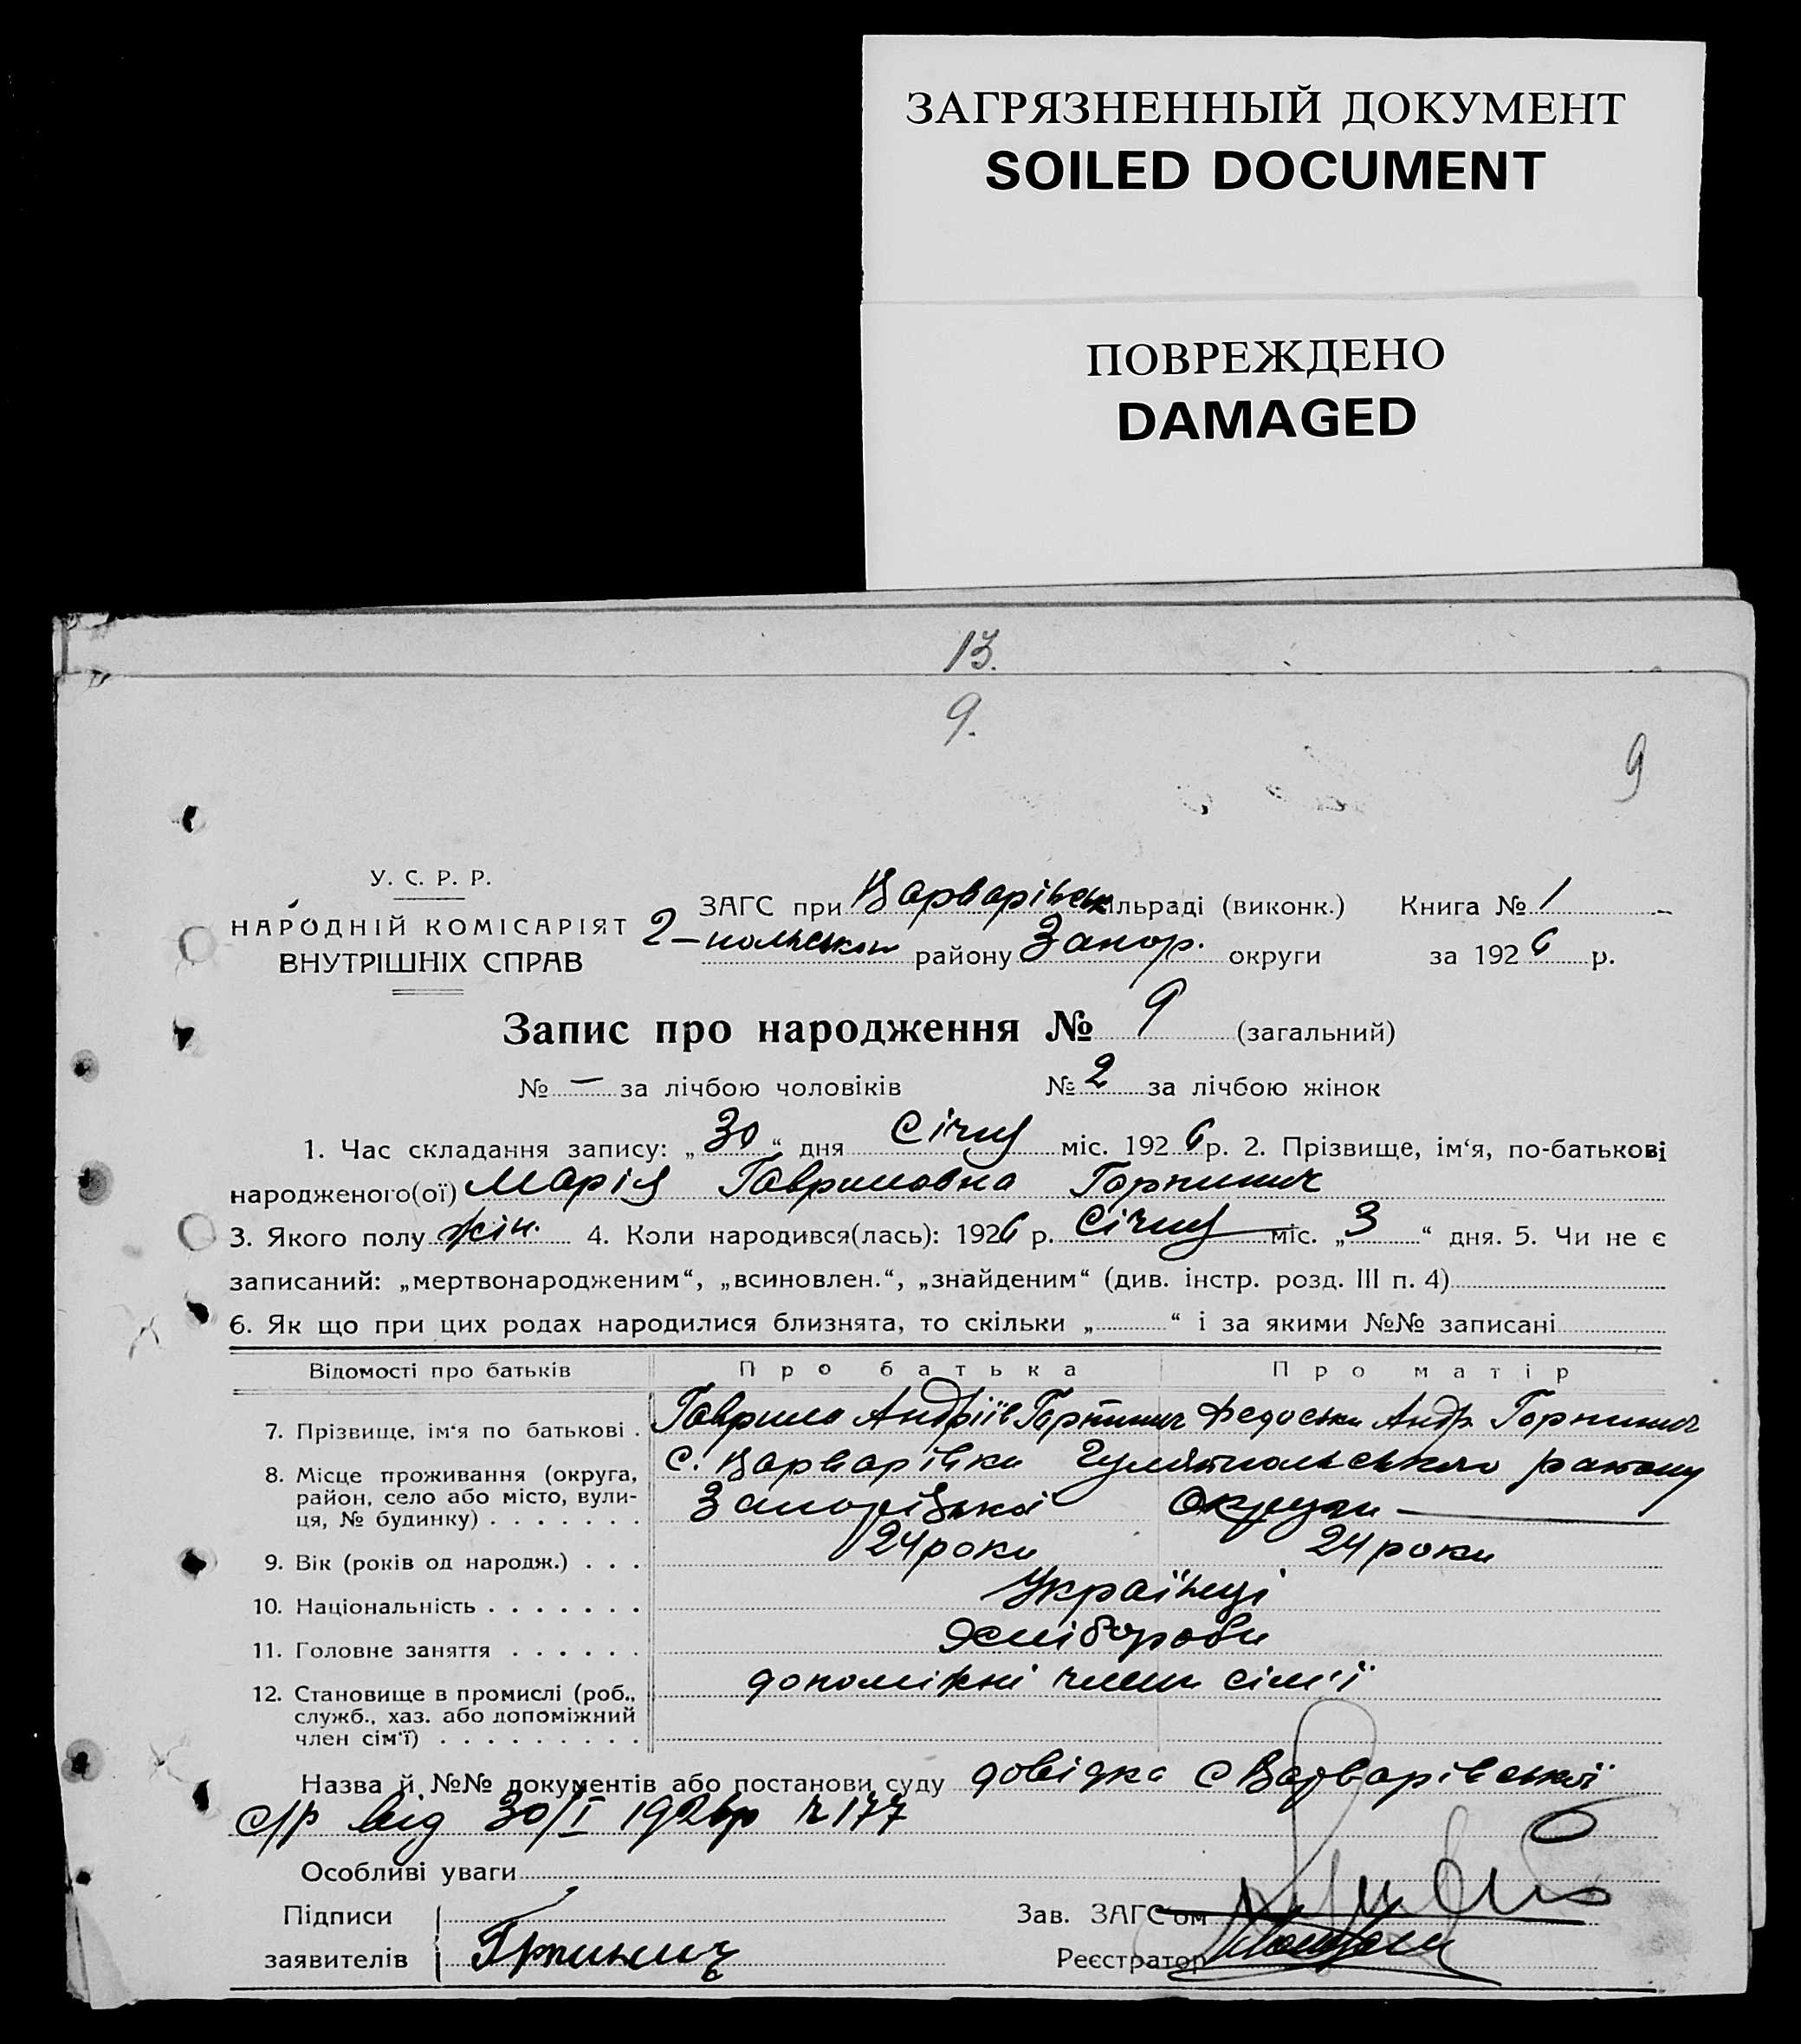 ЗАГРЯЗНЕННЫЙ ДОКУМЕНТ
SOILED DOCUMENT
ПОВРЕЖДЕНО
DAMAGED
13.
9.
9
У. С. Р. Р.
НАРОДНІЙ КОМІСАРІЯТ
ВНУТРІШНІХ СПРАВ
ЗАГС при Варварівськ ільраді (виконк.) Книга № 1
району Запор. округи за 1926 р.
Запис про народження № 9 (загальний)
№ — за лічбою чоловіків № 2 за лічбою жінок
1. Час складання запису: „30“ дня Січня міс. 1926 р. 2. Прізвище, ім‘я, по-батькові
народженого(ої) Марія Гавриловна Горпинич
3. Якого полу жін. 4. Коли народився(лась): 1926 р. Січня міс. „3“ дня. 5. Чи не є
записаний: „мертвонародженим“, „всиновлен.“, „знайденим“ (див. інстр. розд. III п. 4)
6. Як що при цих родах народилися близнята, то скільки „ “ і за якими №№ записані
Відомості про батьків Про батька Про матір
7. Прізвище, ім‘я по батькові . Гаврило Андріїв Горпинич Федоська Андр Горпинич
8. Місце проживання (округа, район, село або місто, вулиця, № будинку) . . . . . . . с. Варварівки Гуляйпольського району
Запорізької округи
9. Вік (років од народж.) . . . 24 роки 24 роки
10. Національність . . . . . . . Українці
11. Головне заняття . . . . . . Хлібороби
12. Становище в промислі (роб., служб., хаз. або допоміжний член сім‘ї) . . . . . . . . . допоміжні члени сім'ї
Назва й №№ документів або постанови суду довідка с Варварівської
с/р від 30/I 1926р ч 177
Особливі уваги
Підписи
заявителів Грпинич
Зав. ЗАГС‘ом
Реєстратор